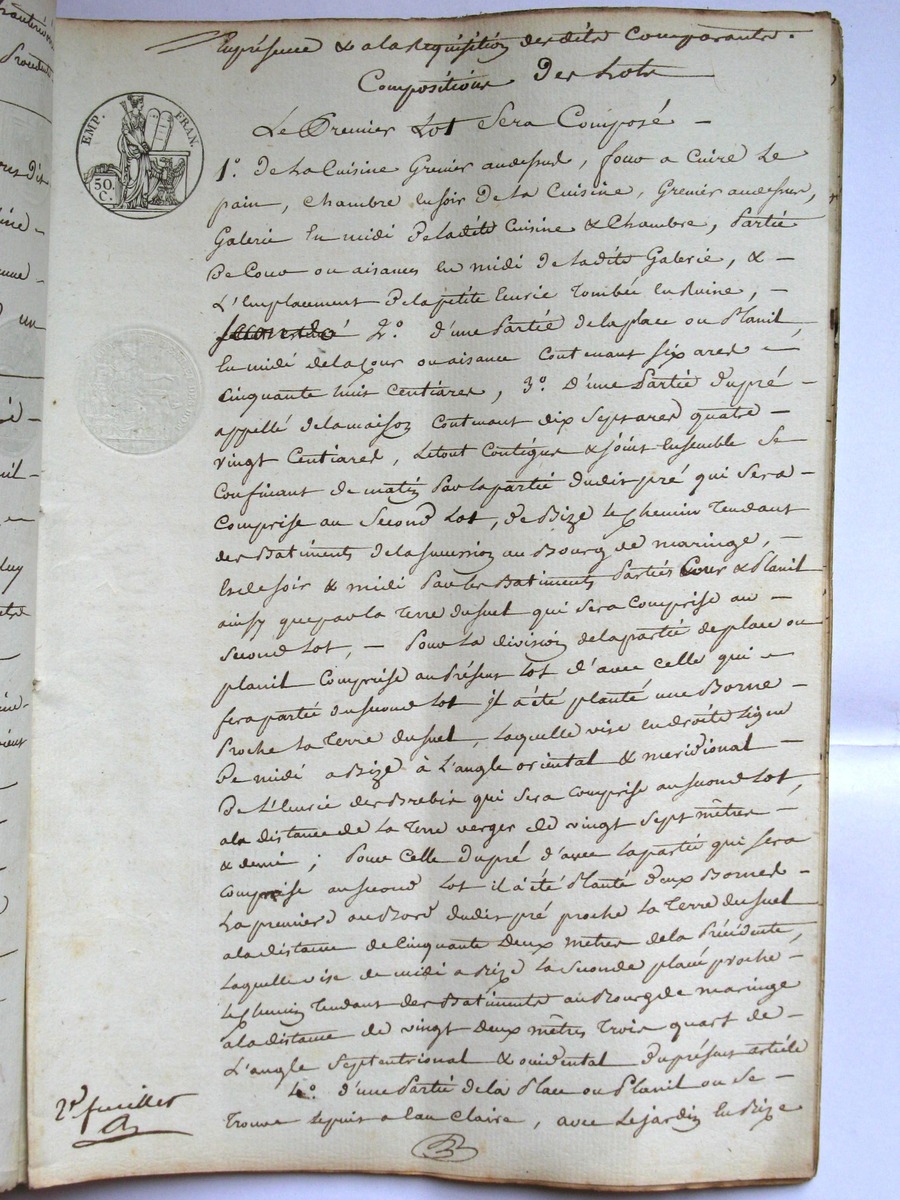 En présence & a la Requisition des dits Comparants.
Compositions Des Lots
EMP. FRAN.
50. C.
Le Premier Lot Sera Composé —
1.° De La Cuisine Grenier audessus, four a Cuire Le
pain, Chambre en soir De La Cuisine, Grenier audessus,
Galerie En midi De la dite Cuisine & Chambre, Partie
De Cour ou aisances En midi De La dite Galerie, & —
L'Emplacement De la petite Ecurie Tombée En Ruine, —
2.° d'une Partie de la place ou Planil
En midi de la Cour ou aisance Contenant Six ares —
Cinquante huit Centiares, 3.° D'une Partie Du pré —
appellé de la maison Contenant dix Sept ares quatre —
vingt Centiares, Le tout Contigue & joint Ensemble Se
Confinant de matin Par la partie du dit pré qui Sera —
Comprise au Second Lot, de Bize Le Chemin Tendant
des Batiments de la succession au Bourg de maringe, —
Et de soir & midi Par les Batiments Parties Cour & Planil
ainsy que par la Terre du suel qui Sera Comprise au —
Second Lot, — Pour La division de la partie de place ou
planil Comprise au Présent Lot d'avec Celle qui —
fera partie du Second Lot il a été planté une Borne —
Proche La Terre du suel, Laquelle vise en droite Ligne
De midi a Bize à L'angle oriental & meridional —
De L'Ecurie des Brebis qui Sera Comprise au Second Lot,
a la distance de La Terre verger de vingt Sept mètres —
& demi ; Pour Celle du pré d'avec La partie qui Sera
Comprise au Second Lot il a été Planté Deux Bornes —
La premiere au Bord du dit pré proche La Terre du suel
a la distance de Cinquante Deux mètres de la Précédente,
Laquelle vise de midi a Bize La Seconde placé proche —
Le Chemin Tendant des Batiments au Bourg de maringe
a la distance de vingt Deux mètres Trois quart de —
L'angle Septentrional & occidental Du présent article
4.° d'une Partie de la Place ou Planil ou Se —
Trouve Le puis a Eau Claire, avec Le jardin En Bize
2.e feuillet